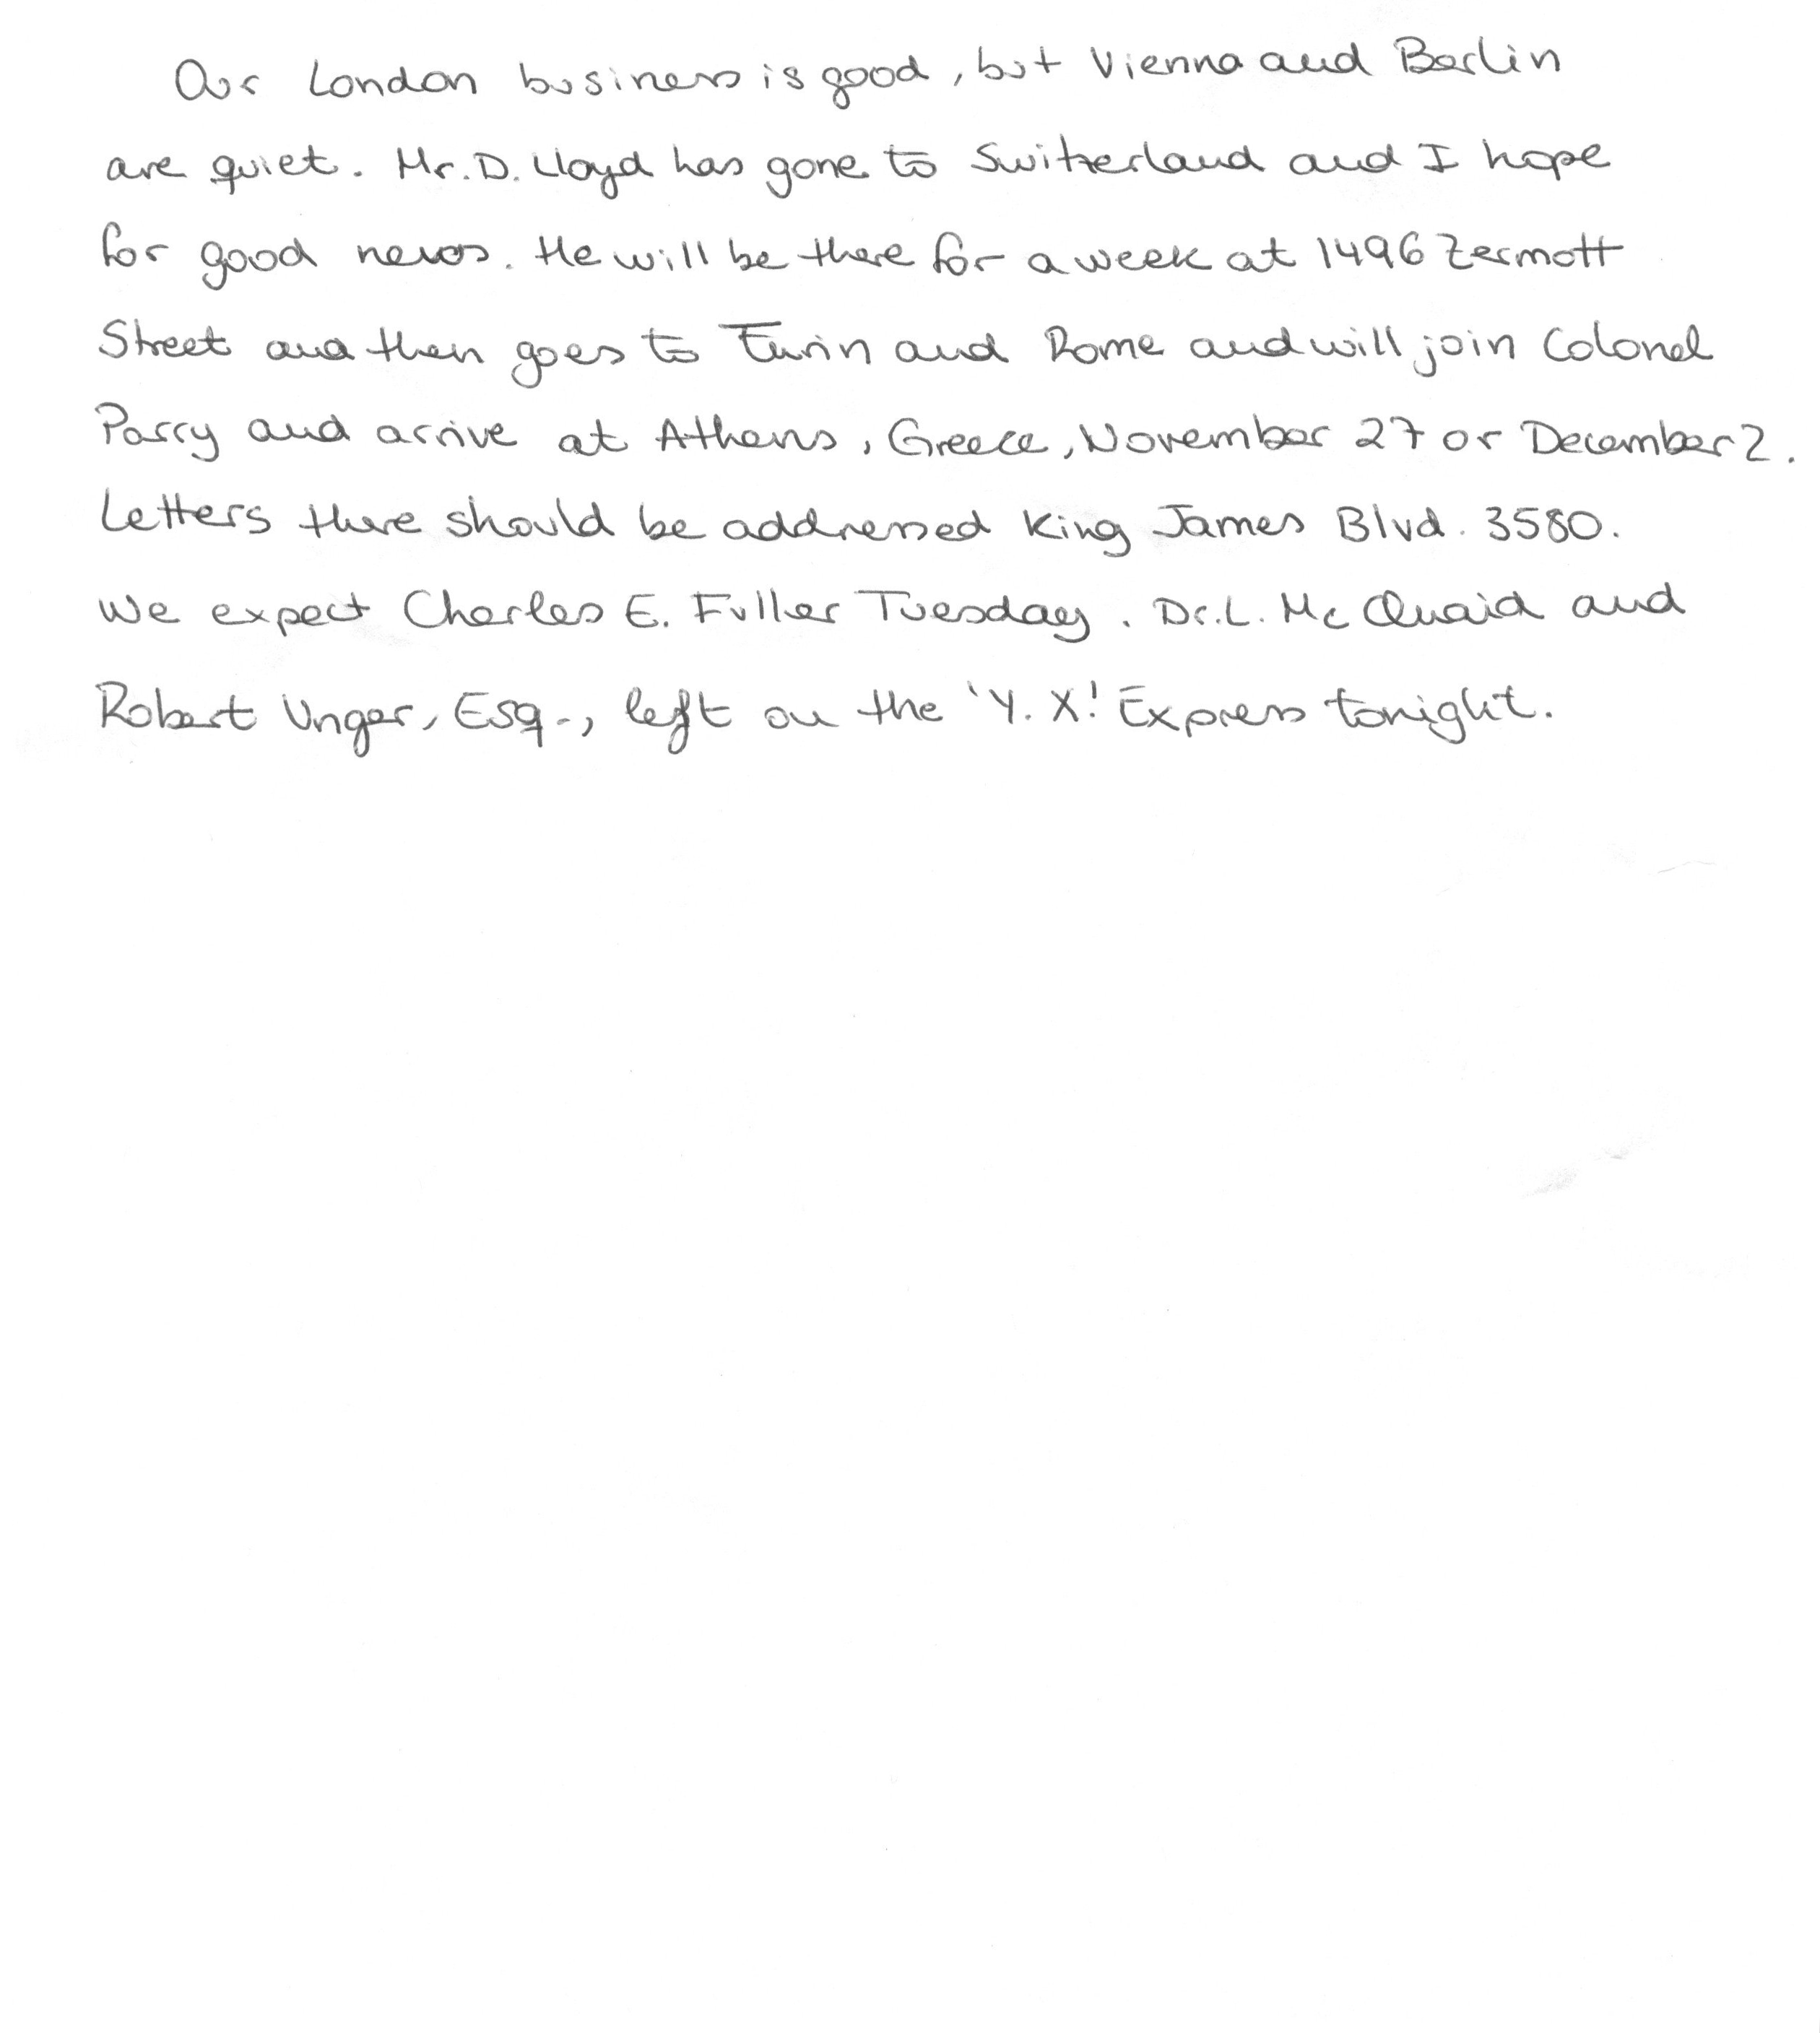 Our London business is good, but Vienna and Berlin
are quiet. Mr. D. Lloyd has gone to Switzerland and I hope
for good news. He will be there for a week at 1496 Zermott
Street and then goes to Turin and Rome and will join Colonel
Parry and arrive at Athens, Greece, November 27 or December 2.
Letters there should be addressed King James Blvd. 3580.
We expect Charles E. Fuller Tuesday. Dr. L. Mc Quaid and
Robert Unger, Esq., left on the 'Y. X.' Express tonight.